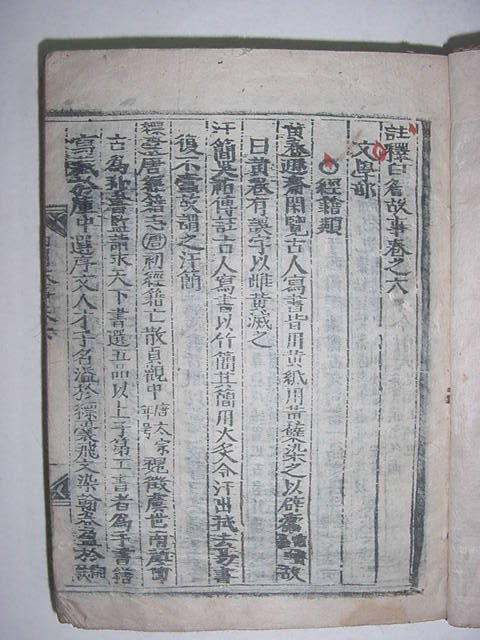 註釋白眉故事卷之六
文學部
經籍類
黃卷遯齋閑覽古人寫書皆用黃紙用黃蘗染之以辟蠹故
曰黃卷有誤字以雌黃滅之
汗簡吳祐傳註古人寫書以竹簡其簡用火炙令汗出拭去易書
復不蠹故謂之汗簡
縹囊唐經籍志國初經籍亡散貞觀中唐太宗年号魏徵虞世南
古為秘書監請求天下書選五品以上子弟工書者為手書繕
寫藏於庫中選序文人才子名溢於縹囊飛文染翰卷盈於